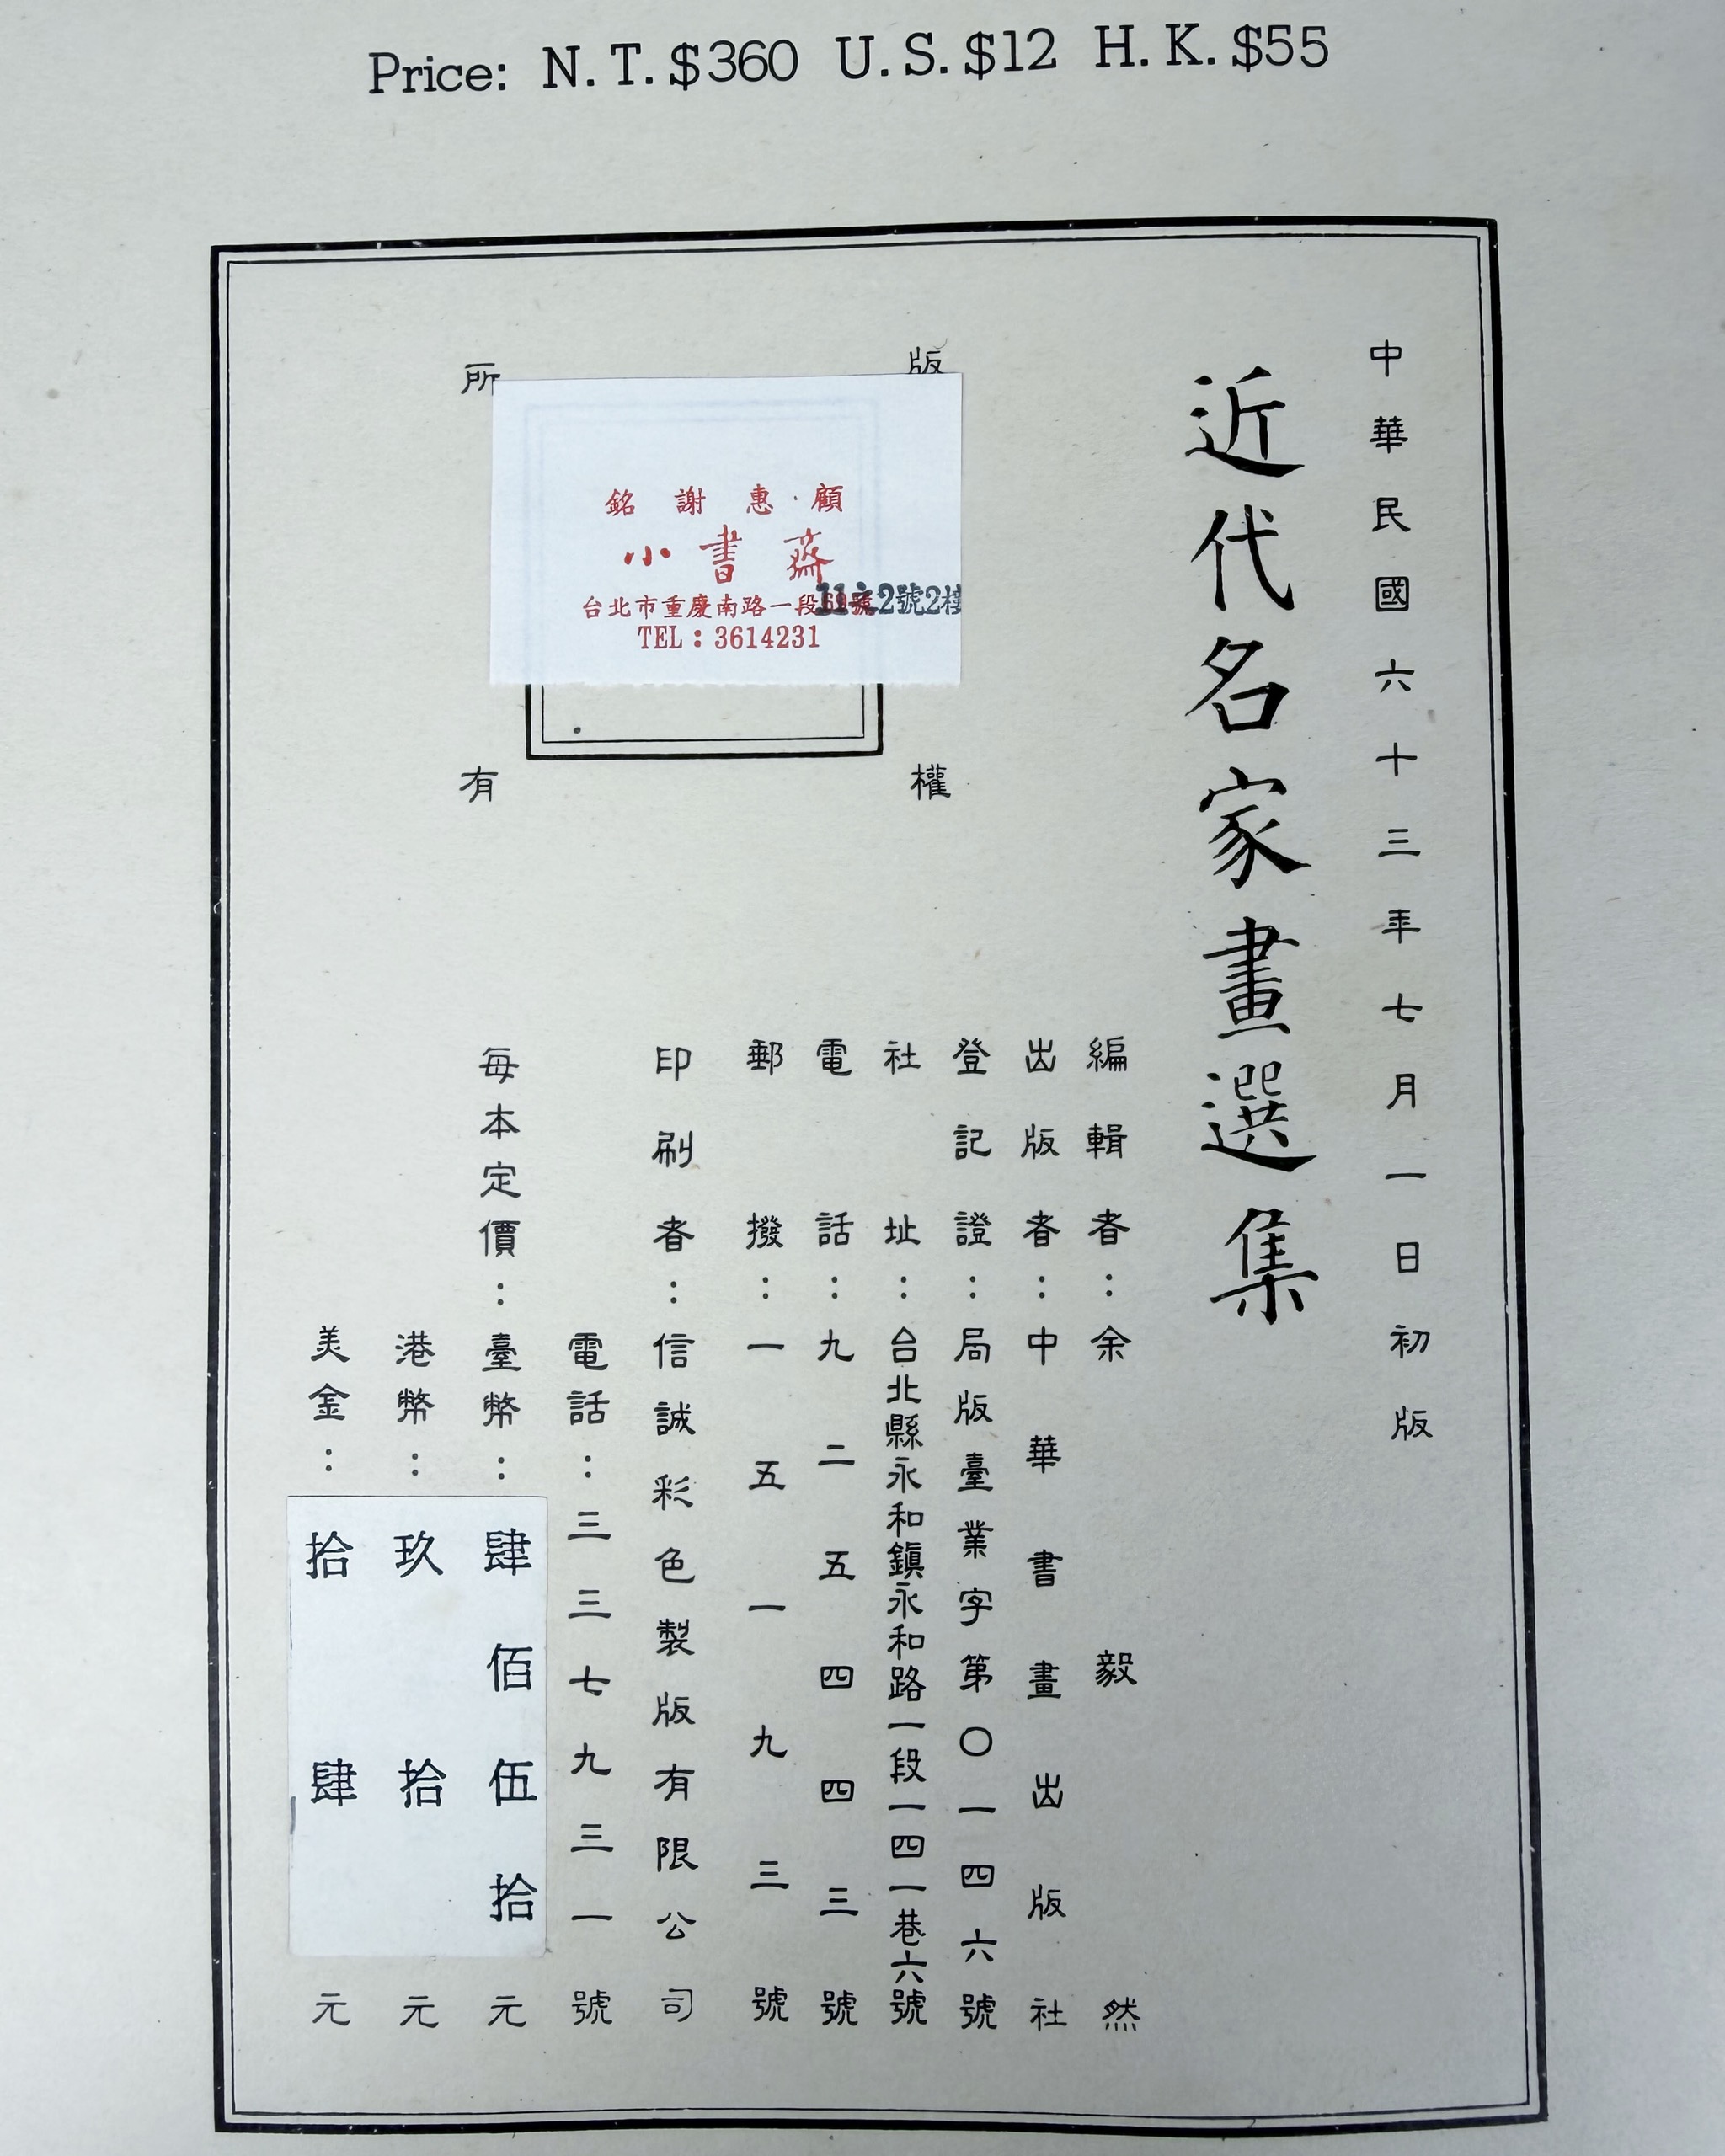 Price: N.T.$360 U.S.$12 H.K.$55
中華民國六十三年七月一日初版
近代名家畫選集
版權所有
銘謝惠顧
小書齋
台北市重慶南路一段11之2號2樓
TEL：3614231
編輯者：余毅然
出版者：中華書畫出版社
登記證：局版臺業字第〇一四六號
社址：台北縣永和鎮永和路一段一四一巷六號
電話：九二五四四三號
郵撥：一五一九三號
印刷者：信誠彩色製版有限公司
電話：三三七九三一號
每本定價：臺幣：肆佰伍拾元
港幣：玖拾元
美金：拾肆元